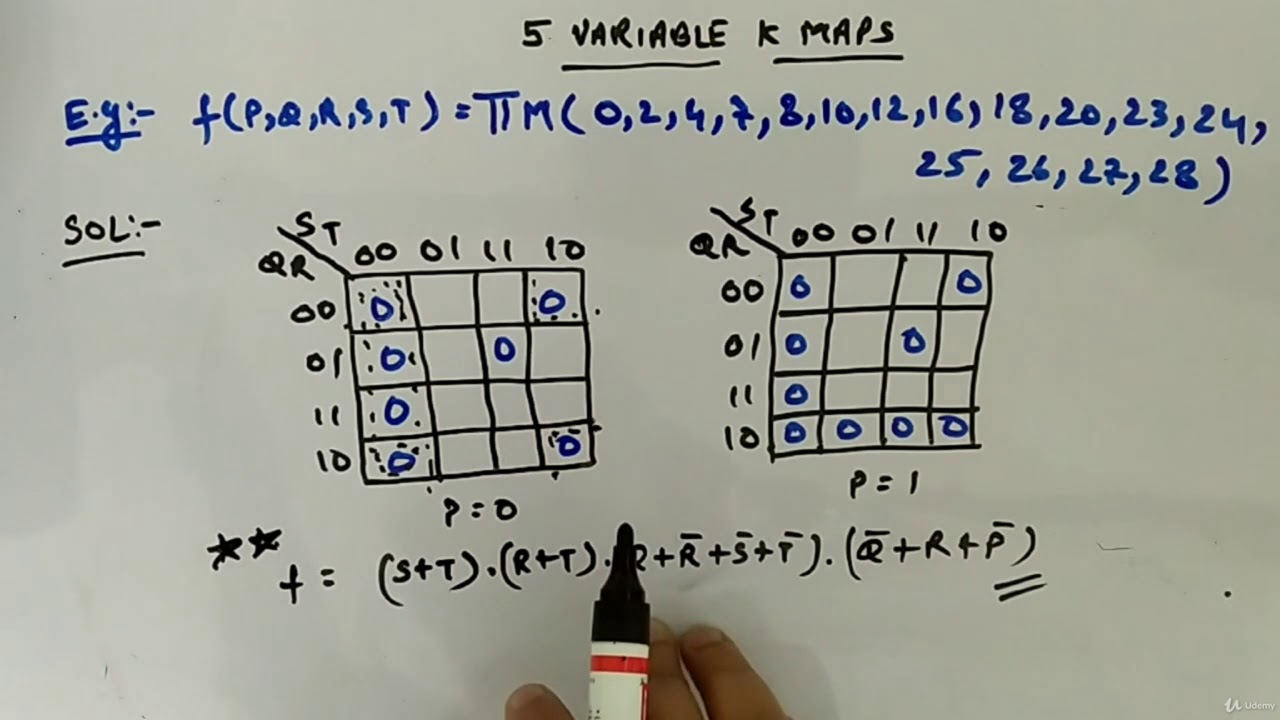 5 VARIABLE K MAPS
E.g:- f(P,Q,R,S,T) = ΠM(0,2,4,7,8,10,12,16,18,20,23,24,
25,26,27,28)
SOL:-
ST
QR
00 01 11 10
00 0 0
01 0 0
11 0
10 0 0
P=0
ST
QR
00 01 11 10
00 0 0
01 0 0
11 0
10 0 0 0 0
P=1
** f = (S+T).(R+T). +R̄+S̄+T̄).(Q̄+R+P̄)
Udemy